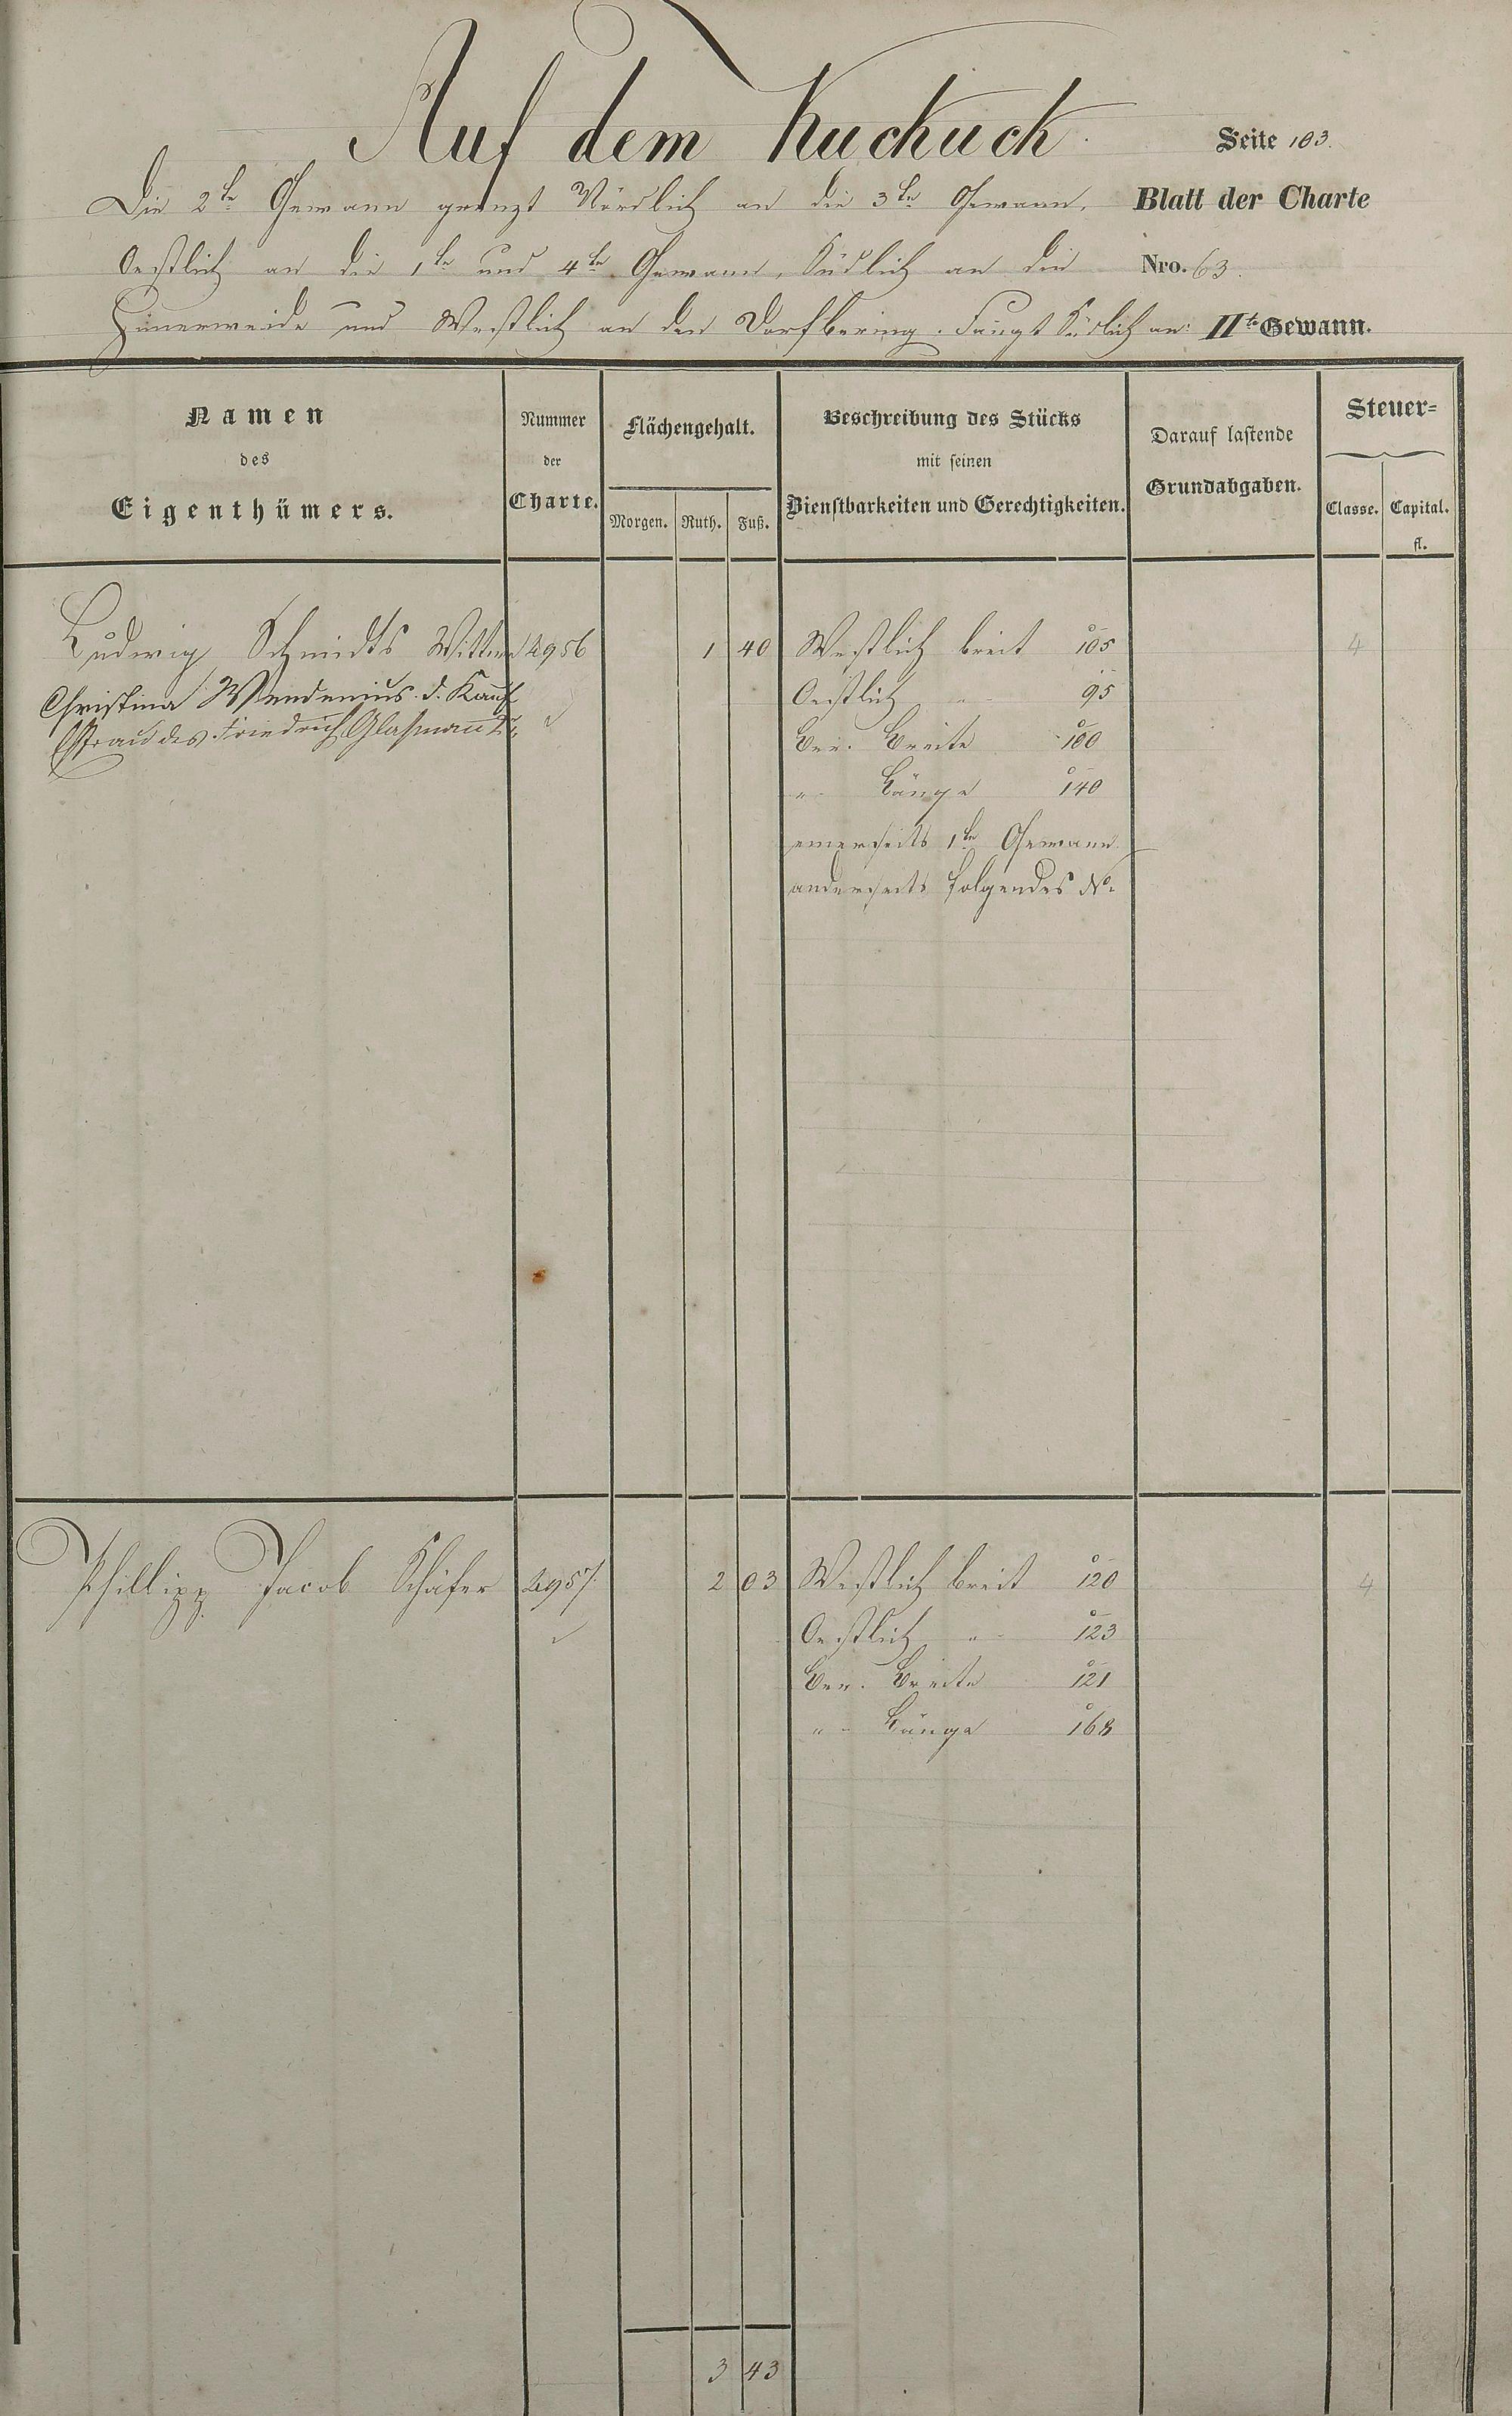 Auf dem Kuckuck.
Seite 103.
Die 2te Gewann grenzt Nördlich an die 3te Gewann,
Blatt der Charte
Oestlich an die 1te und 4te Gewann, Südlich an die
Nro. 63.
Hünerweide und Westlich an den Dorfbering. Fängt Südlich an:
IIte Gewann.
Namen
des
Eigenthümers.
Nummer
der
Charte.
Flächengehalt.
Morgen. Ruth. Fuß.
Beschreibung des Stücks
mit seinen
Dienstbarkeiten und Gerechtigkeiten.
Darauf lastende
Grundabgaben.
Steuer-
Classe. Capital.
fl.
Ludwig Schmidts Wittwe 4956 1 40 Westlich breit 105 4
Christina Wendenius d. Kauf
Oestlich " 95
Ehfrau des Friedrich Glasmann
Ber. Breite 100
" Länge 140
einerseits 1te Gewann
anderseits folgendes No.
Phillipp Jacob Schäfer 4957. 2 03 Westlich breit 120 4
Oestlich " 123
Ber. Breite 121
" Länge 168
3 43